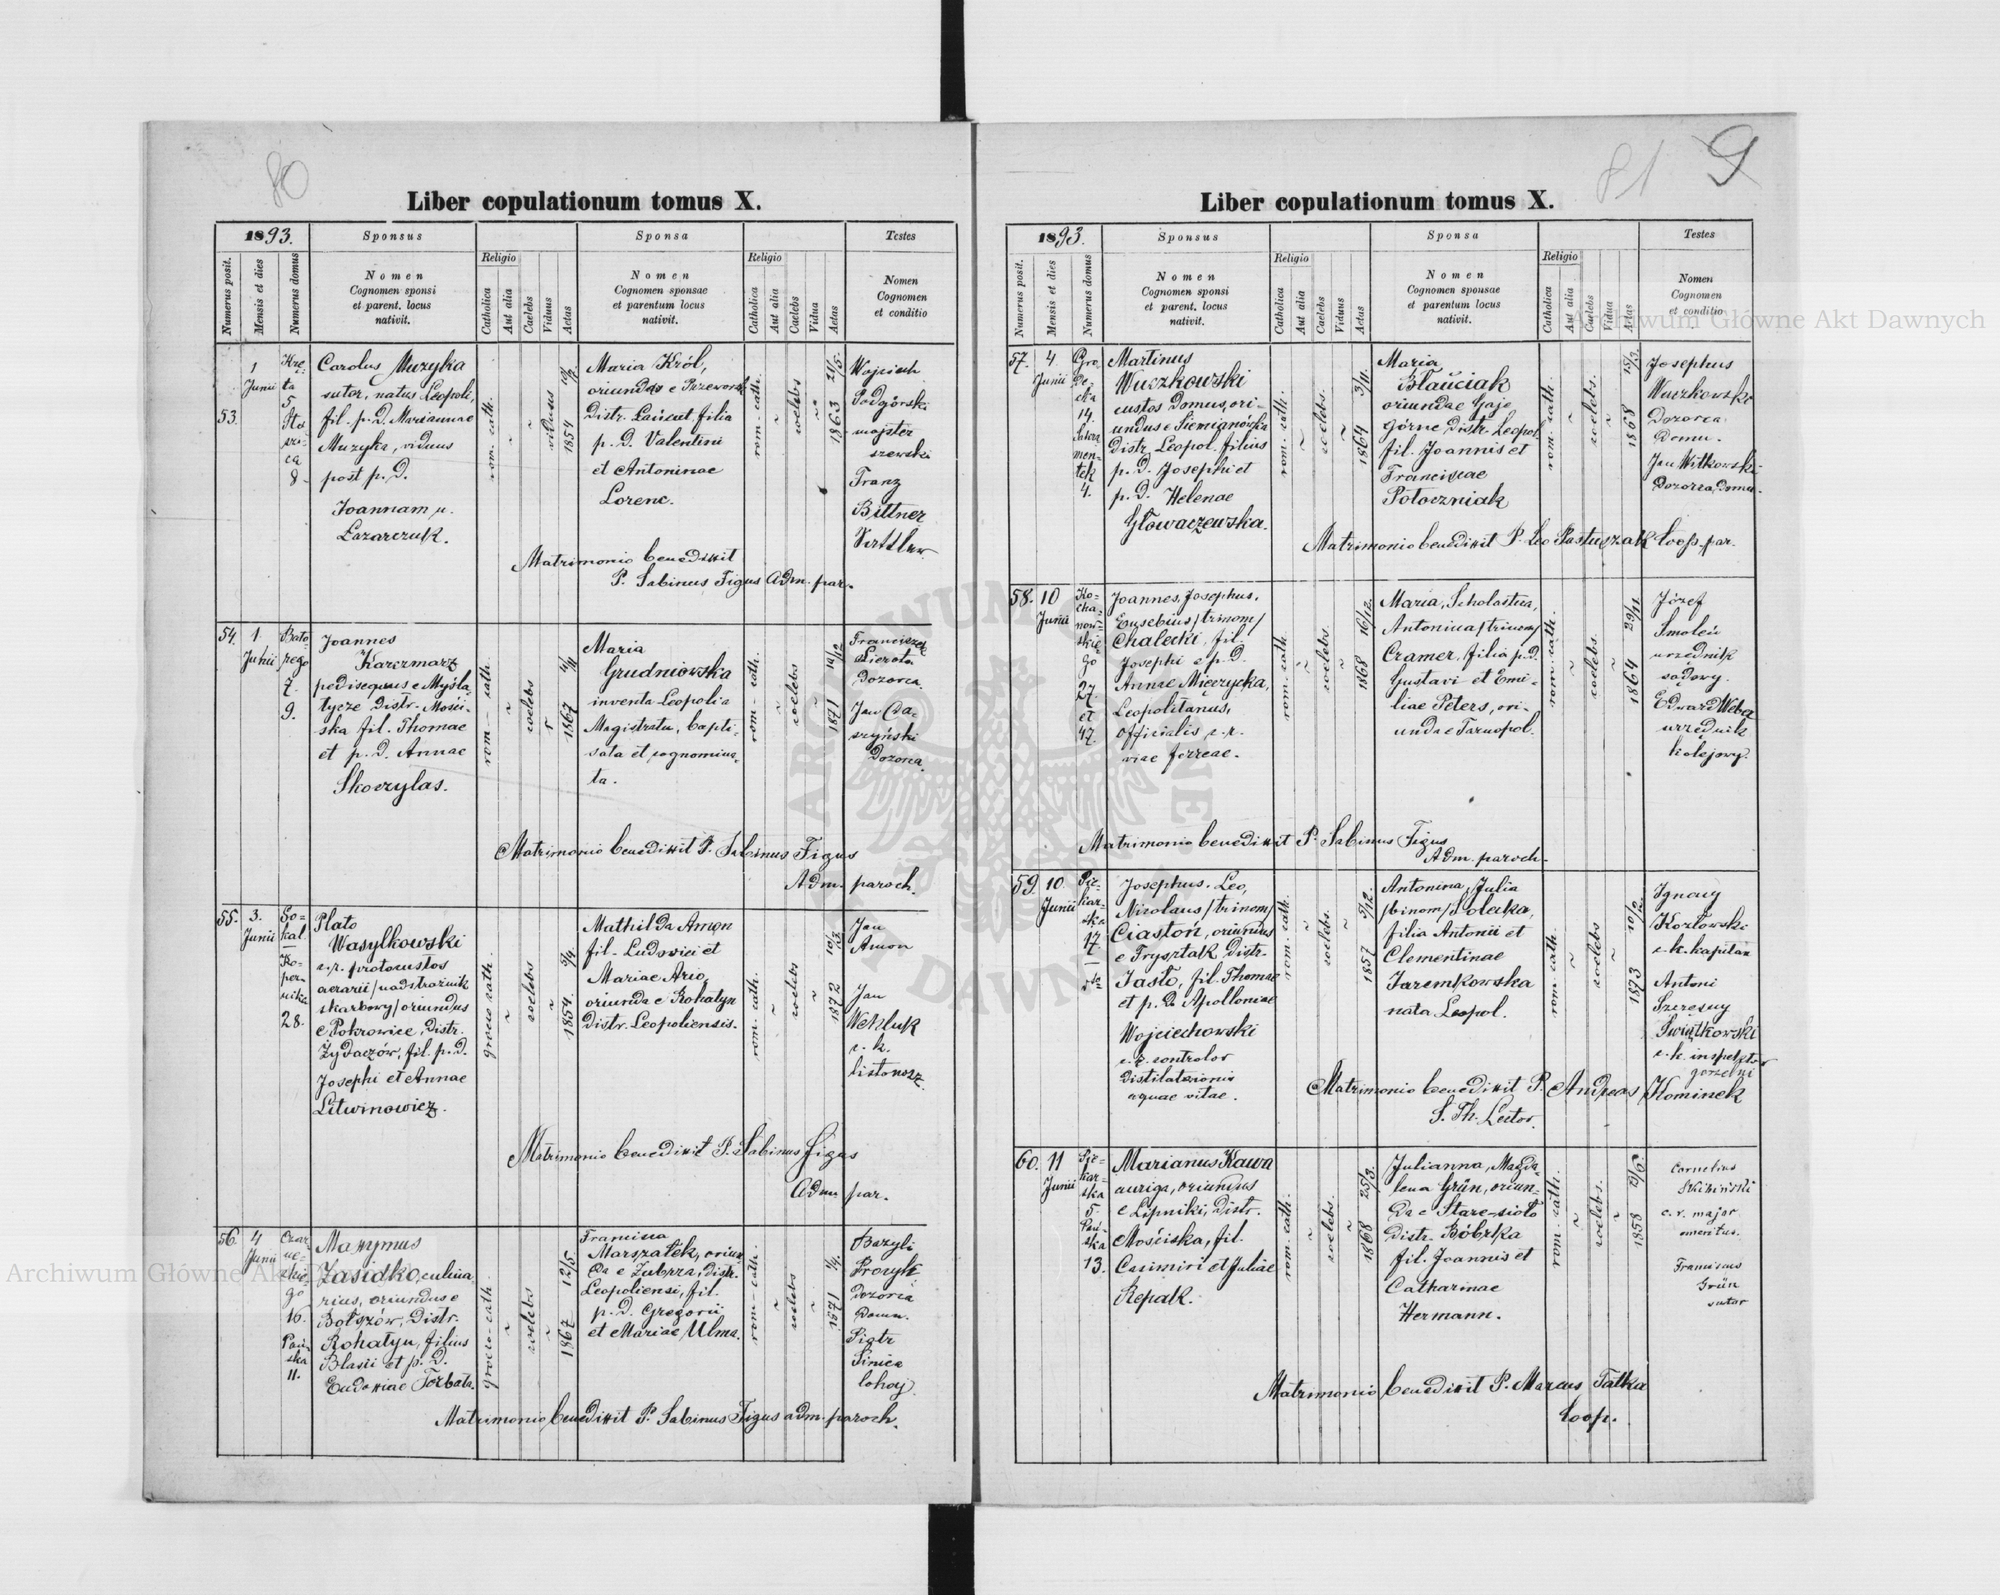 80
Liber copulationum tomus X.
1893.
Sponsus
Sponsa
Testes
Numerus posit.
Mensis et dies
Numerus domus
Nomen
Cognomen sponsi
et parent. locus
nativit.
Religio
Catholica
Aut alia
Caelebs
Viduus
Aetas
Nomen
Cognomen sponsae
et parentum locus
nativit.
Religio
Catholica
Aut alia
Caelebs
Vidua
Aetas
Nomen
Cognomen
et conditio
53.
1
Junii
Kre-
ta
5.
8
Carolus Muzyka
sutor, natus Leopoli,
fil. p. D. Mariannae
Muzyka, viduus
post p. D.
Joannam u.
Lazarczuk.
rom. cath.
viduus
1854
Maria Król,
oriunda e Przeworsk
Distr. Łańcut filia
p. D. Valentini
et Antoninae
Lorenc.
rom. cath.
coelebs
1863 21/5.
Wojciech
Podgórski
majster
szewski
Franz
Bittner
Matrimonio benedixit
P. Sabinus Figus Adm. par.
54.
1.
Junii
Bato
rego
7.
9.
Joannes
Karczmarz
pedisequus e Myśla
tycze Distr. Mości-
ska fil. Thomae
et p. D. Annae
Skoczylas.
rom. cath.
coelebs
1867
Maria
Grudniowska
inventa Leopolia
Magistratu, bapti-
sata et cognomina-
ta.
rom. cath.
coelebs
1871
Franciszek
Dozorca.
Jan
Dozorca.
Matrimonio benedixit P. Sabinus Figus
Adm. paroch.
55.
3.
Junii
So-
kal
Ko-
per-
nika
28.
Plato
Wasylkowski
c. r. protocustos
aerarii /nadstrażnik
skarbowy/ oriundus
e Pokrowice, Distr.
Żydaczów, fil. p. D.
Josephi et Annae
Litwinowicz.
graeco cath.
coelebs
1854.
Mathilda Amon
fil. Ludovici et
Mariae Ario,
oriunda e Rohatyn
Distr. Leopoliensis.
rom. cath.
coelebs
1872
Jan
Amon
Jan
c. k.
listonosz.
Matrimonio benedixit P. Sabinus Figus
Adm. par.
56.
4
Junii
Czar-
ne-
ckie-
go
16.
Pań-
ska
11.
Maxymus
Zasidko, culina
rius, oriundus e
Bołszów, Distr.
Rohatyn, filius
Blasii et p. D.
Eudoxiae Torbata.
graeco-cath.
coelebs
1867 12/5.
Francisca
Marszałek, oriun
da e Zubrza, Distr.
Leopoliensi, fil.
p. D. Gregorii
et Mariae Ulma.
rom. cath.
coelebs
1871
Bazyli
Dozorca
Domu.
Piotr
Matrimonio benedixit P. Sabinus Figus adm. paroch.
81
9
Liber copulationum tomus X.
1893.
Sponsus
Sponsa
Testes
Numerus posit.
Mensis et dies
Numerus domus
Nomen
Cognomen sponsi
et parent. locus
nativit.
Religio
Catholica
Aut alia
Caelebs
Viduus
Aetas
Nomen
Cognomen sponsae
et parentum locus
nativit.
Religio
Catholica
Aut alia
Caelebs
Vidua
Aetas
Nomen
Cognomen
et conditio
57.
4
Junii
Gro
De-
cka
14.
Sakra
men-
tek
4.
Martinus
Wuczkowski
custos Domus, ori-
undus e Siemianówka
Distr. Leopol. filius
p. D. Josephi et
p. D. Helenae
Głowaczewska.
rom. cath.
coelebs.
1864 3/11.
Maria
Błauciak
oriundae Gaje
Górne Distr. Leopol.
fil. Joannis et
Franciscae
Potoczniak
rom. cath.
coelebs.
1868
Josephus
Wuczkowski
Dozorca
Domu.
Jan Witkowski
Dozorca Domu.
Matrimonio benedixit P. Leo Pastuszak Coop. par.
58.
10
Junii
Ko-
cha-
now-
skie-
go
27.
et
47.
Joannes, Josephus,
Eusebius /trinom/
Chalecki, fil.
Josephi e p. D.
Annae Mięczycka,
Leopolitanus,
Officialis c. r.
viae ferreae.
rom. cath.
coelebs.
1868 16/12.
Maria, Scholastica,
Antonina /trinom/
Cramer, filia p. D.
Gustavi et Emi-
liae Peters, ori-
unda e Tarnopol.
rom. cath.
coelebs.
1864 29/11.
Józef
Smoleń
urzędnik
sądowy.
Edward Weber
urzędnik
kolejowy.
Matrimonio benedixit P. Sabinus Figus
Adm. paroch.
59.
10.
Junii
Pie-
kar-
ska
17.
Josephus, Leo,
Nicolaus /trinom/
Ciastoń, oriundus
e Frysztak Distr.
Jasło, fil. Thomae
et p. D. Apolloniae
Wojciechowski
c. r. controlor
distilationis
aquae vitae.
rom. cath.
coelebs.
1857
Antonina, Julia
/binom/ Solecka,
filia Antonii et
Clementinae
Jaremkowska
nata Leopol.
rom. cath.
coelebs
1873 10/2.
Ignacy
Kozłowski
c. k. kapitan
Antoni
Szczęsny
Świątkowski
c. k. inspektor
gorzelni
Matrimonio benedixit P. Andreas Kominek
S. Th. Lector.
60.
11
Junii
Pie-
kar-
ska
5.
Pań-
ska
13.
Marianus Kawa
auriga, oriundus
e Lipniki, Distr.
Mościska, fil.
Casimiri et Juliae
Repak.
rom. cath.
coelebs.
1868 25/3.
Julianna, Magda-
lena Grün, oriun-
da e Stare-sioło
Distr. Bóbrka
fil. Joannis et
Catharinae
Hermann.
rom. cath.
coelebs.
1858
Cornelius
Skibiński
c. r. major
emeritus.
Franciscus
Grün
sutor
Matrimonio benedixit P. Marcus Fatka
Coop.
Archiwum Główne Akt Dawnych
Archiwum Główne Akt Dawnych
ARCHIWUM GŁÓWNE AKT DAWNYCH